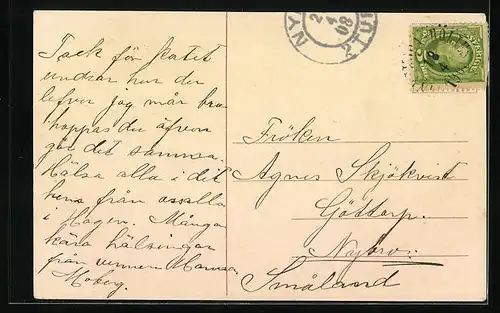 Tack för kortet
undrar hur du
lefver jag mår bra
hoppas du äfven
gör det samma.
Hälsa alla i det
hem från oss alla
i Hagen. Många
kära hälsingar
från vännen
Moberg.
Fröken
Agnes Skjökvist
Göttorp.
Nybro.
Småland
NY
2
4
08
SVERIGE